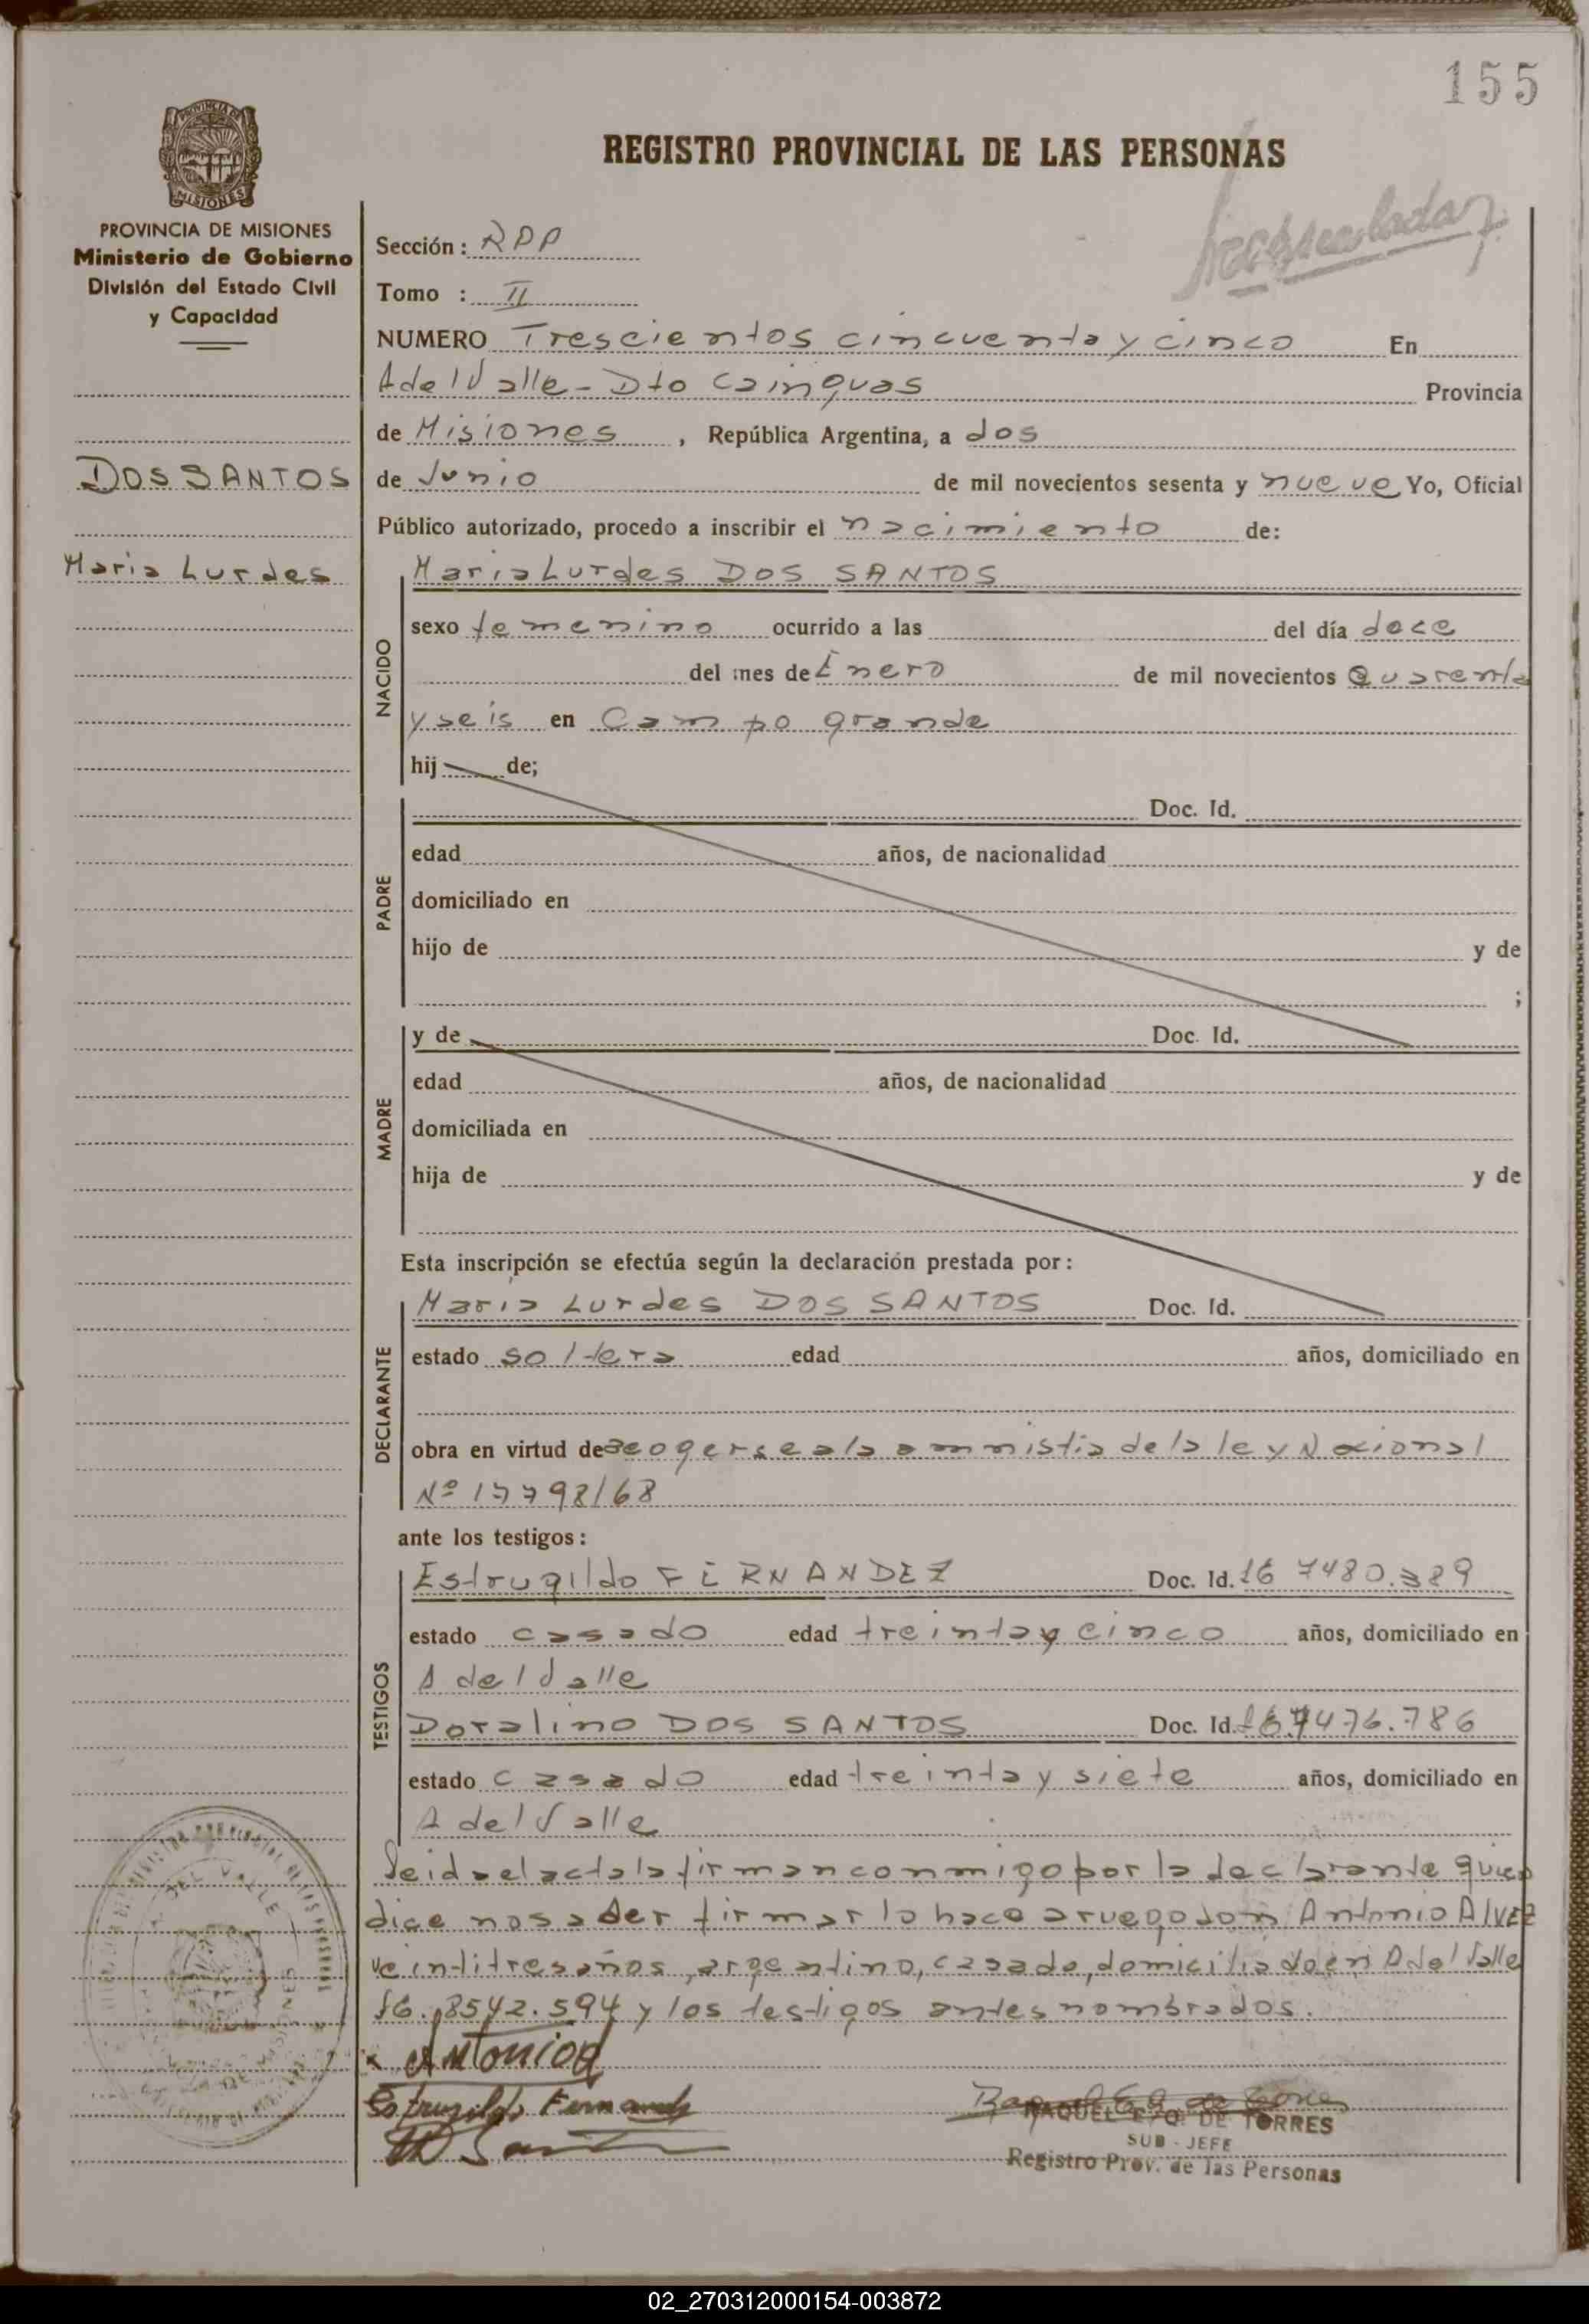 155
PROVINCIA DE MISIONES
REGISTRO PROVINCIAL DE LAS PERSONAS
PROVINCIA DE MISIONES
Ministerio de Gobierno
División del Estado Civil
y Capacidad
Sección: RPP
Tomo : II
NUMERO Trescientos cincuenta y cinco En
A del Valle - Dto Cainguas Provincia
de Misiones, República Argentina, a dos
DOS SANTOS
de Junio de mil novecientos sesenta y nueve Yo, Oficial
Público autorizado, procedo a inscribir el nacimiento de:
Maria Lurdes
NACIDO
Maria Lurdes DOS SANTOS
sexo femenino ocurrido a las del día doce
del mes de Enero de mil novecientos Quarenta
y seis en Campo grande
hij de;
PADRE
Doc. Id.
edad años, de nacionalidad
domiciliado en
hijo de y de
;
MADRE
y de Doc. Id.
edad años, de nacionalidad
domiciliada en
hija de y de
Esta inscripción se efectúa según la declaración prestada por:
DECLARANTE
Maria Lurdes DOS SANTOS Doc. Id.
estado soltera edad años, domiciliado en
obra en virtud de acogerse a la ammistia de la ley Nacional
Nº 17798/68
ante los testigos:
TESTIGOS
Estrugildo FERNANDEZ Doc. Id. I6 7480.389
estado casado edad treinta y cinco años, domiciliado en
A del Valle
Doralino DOS SANTOS Doc. Id. I67476.786
estado casado edad treinta y siete años, domiciliado en
A del Valle
Leida el acta la firman conmigo por la declarante quien
dice no saber firmar lo hace a ruego don Antonio Alvez
veintitres años, argentino, casado, domiciliado en A del Valle
I6. 8542.594 y los testigos antes nombrados.
x Antonio A
Estrugildo Fernandz
RAQUEL E. O. DE TORRES
SUB - JEFE
Registro Prov. de las Personas
DEL VALLE
02_270312000154-003872